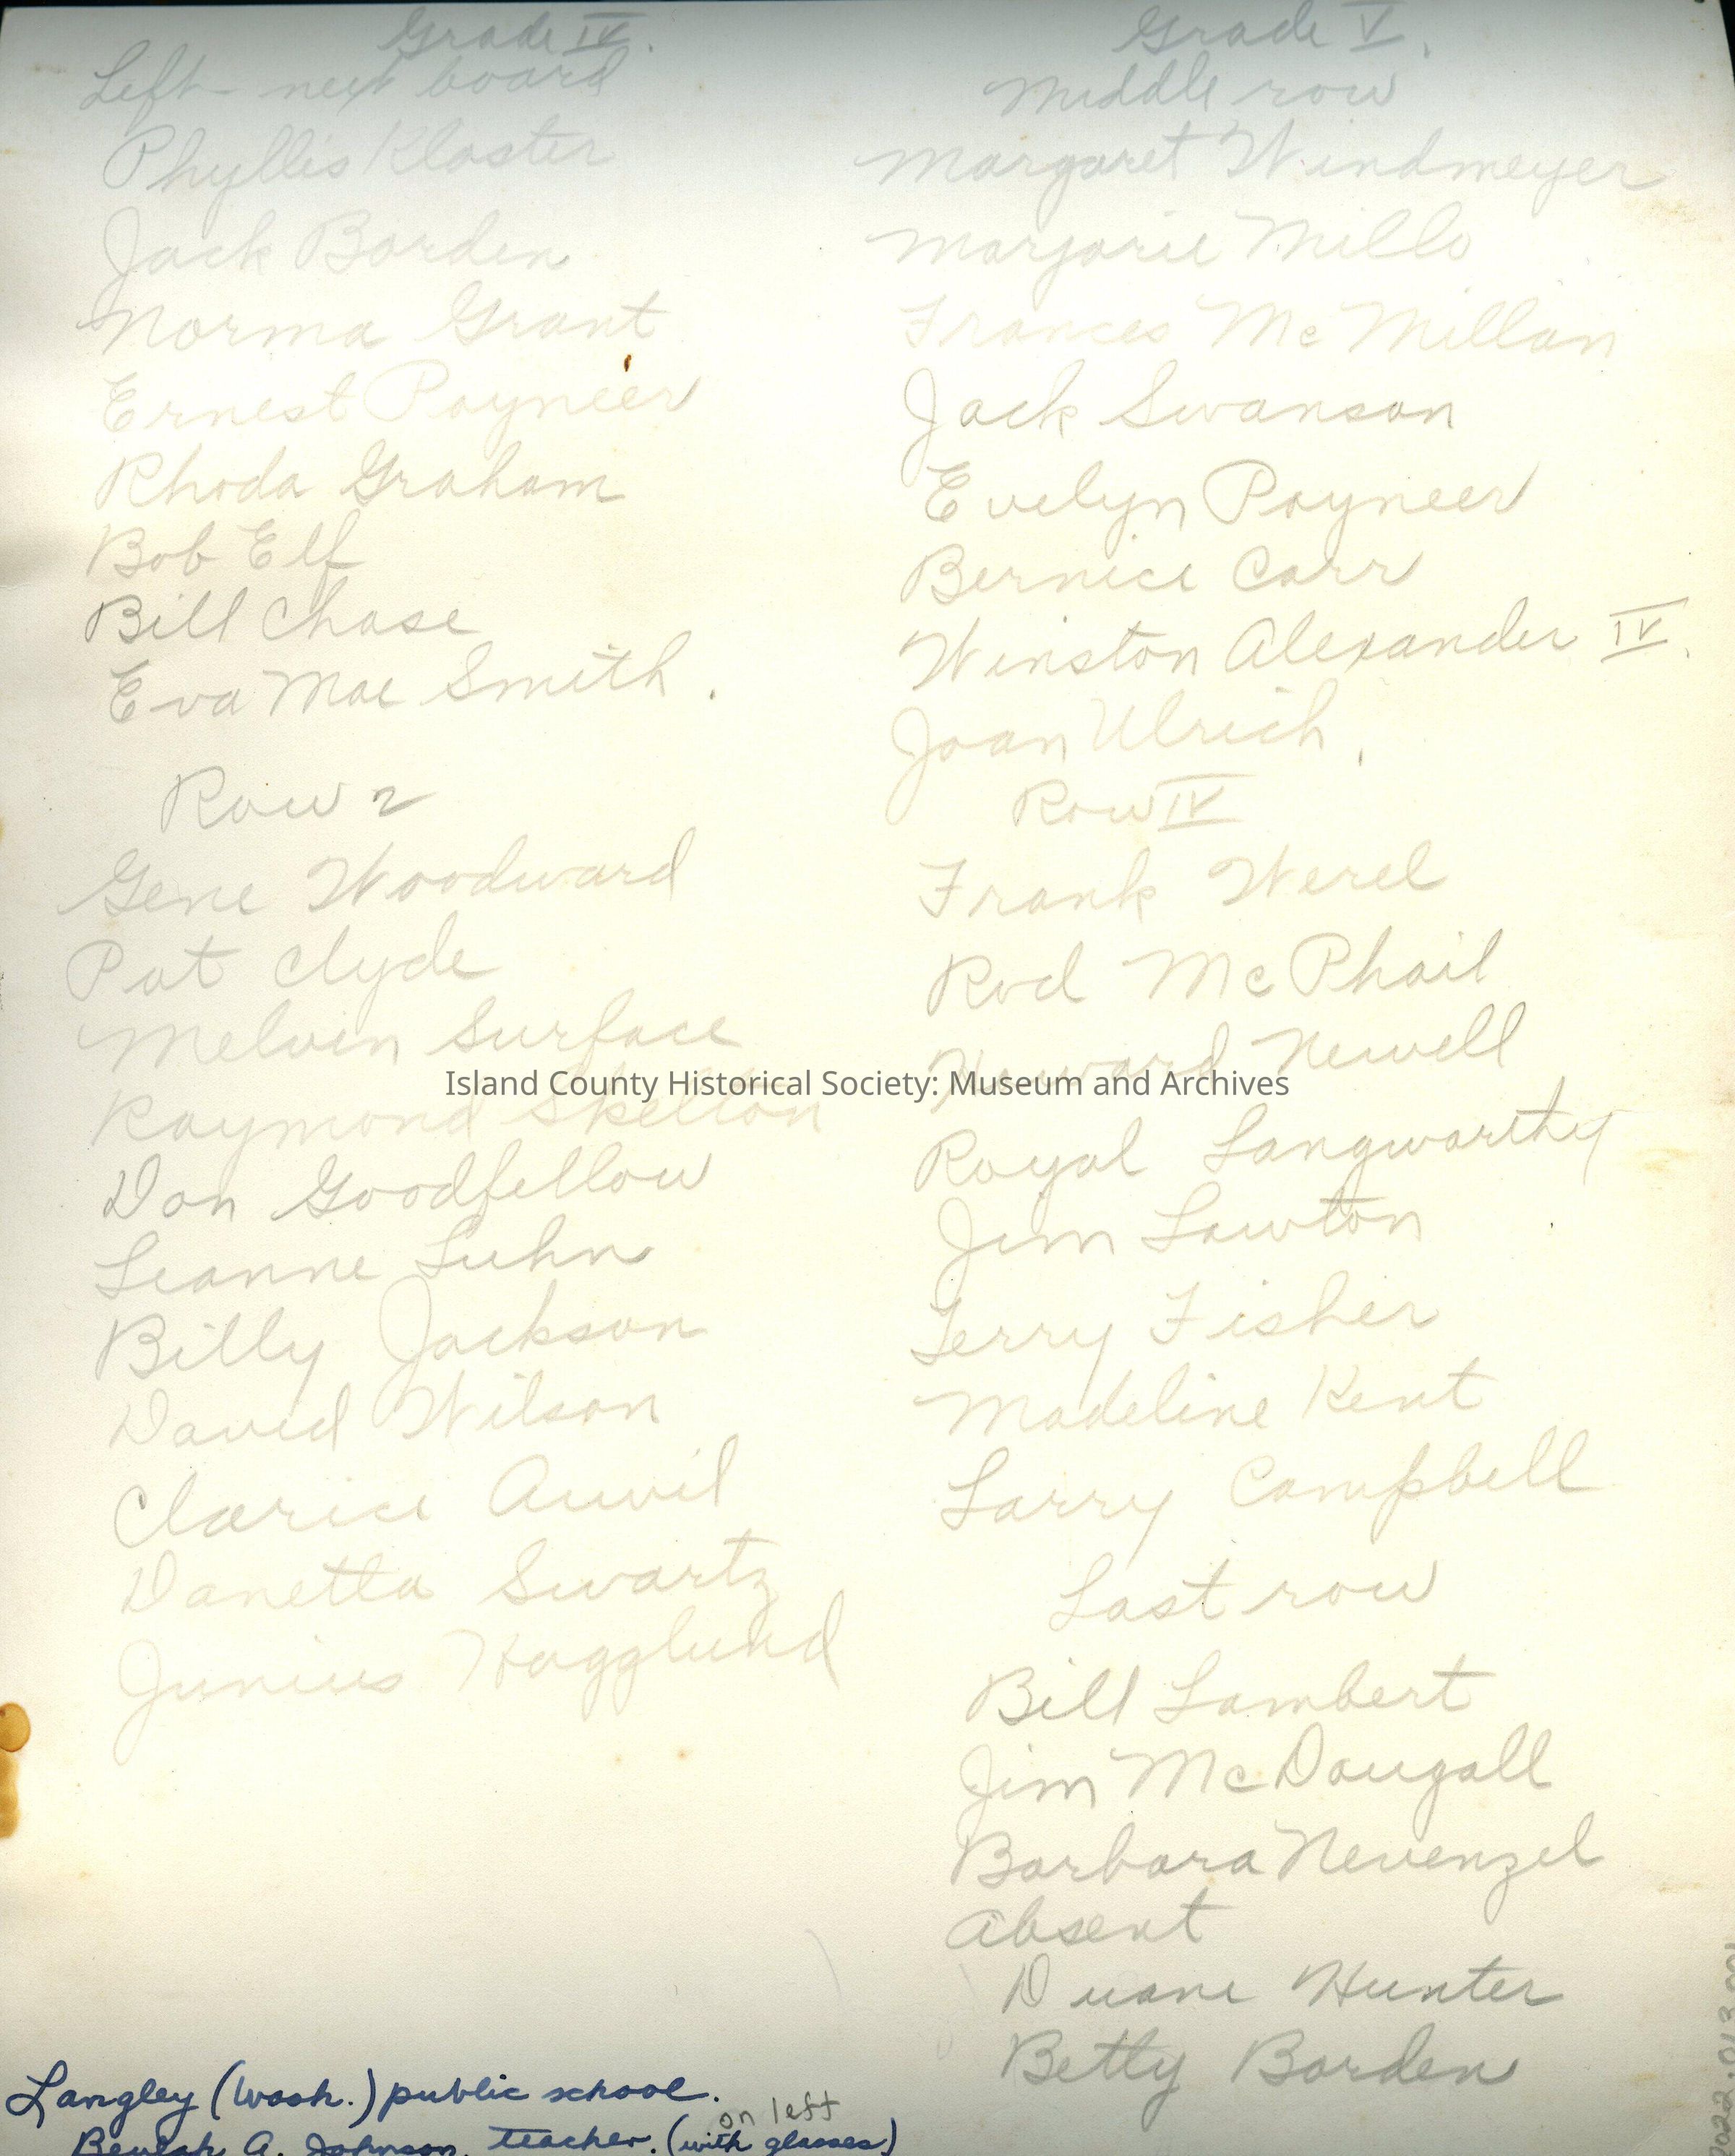 Grade IV.
Left - next board
Phyllis Kloster
Jack Borden
Norma Grant
Ernest Poyneer
Rhoda Graham
Bob Elf
Bill Chase
Eva Mae Smith.
Row 2
Gene Woodward
Pat Clyde
Melvin Surface
Raymond Skelton
Don Goodfellow
Leanne Luhn
Billy Jackson
David Wilson
Clarice Auvil
Danetta Swartz
Junius Hagglund
Grade V.
Middle row
Margaret Windmeyer
Marjorie Mills
Frances McMillan
Jack Swanson
Evelyn Poyneer
Bernice Carr
Winston Alexander IV.
Joan Ulrich,
Row IV
Frank Werel
Rod McPhail
Newell
Royal Langworthy
Jim Lawton
Terry Fisher
Madeline Kent
Larry Campbell
Last row
Bill Lambert
Jim McDougall
Barbara Nevenzel
Absent
Duane Hunter
Betty Borden
Island County Historical Society: Museum and Archives
Langley (Wash.) public school.
on left
Beulah A. Johnson, teacher. (with glasses)